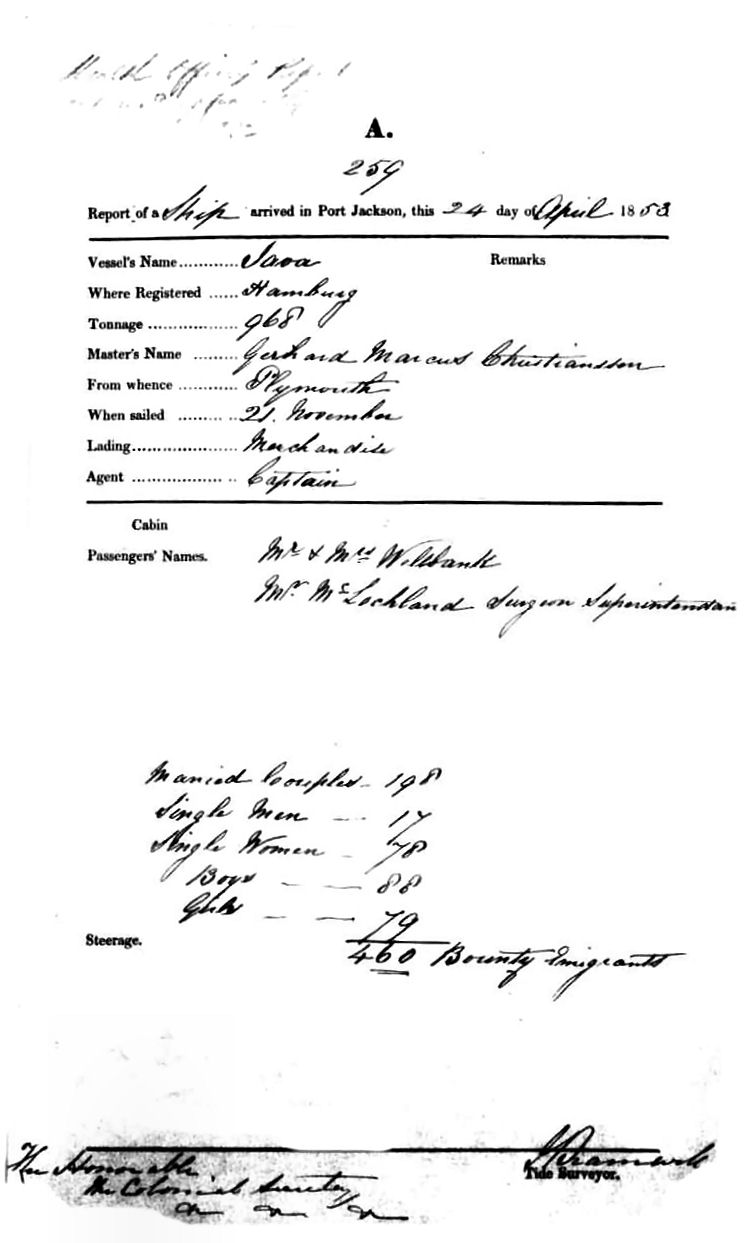 Health Officer's Report
A.
259
Report of a Ship arrived in Port Jackson, this 24 day of April 1853
Vessel's Name ............ Java Remarks
Where Registered ...... Hamburg
Tonnage ................ 968
Master's Name ......... Gerhard Marcus Christianssen
From whence ............ Plymouth
When sailed ......... .. 21. November
Lading..................... Merchandise
Agent .................. .. Captain
Cabin
Passengers' Names. Mr & Mrs Wilsbank
Mr. McLochland Surgeon Superintendan
Married Couples - 198
Single Men - 17
Single Women - 78
Boys - - 88
Girls - - 79
Steerage. 460 Bounty Emigrants
The Honorable
the Colonial Secretary
Tide Surveyor.